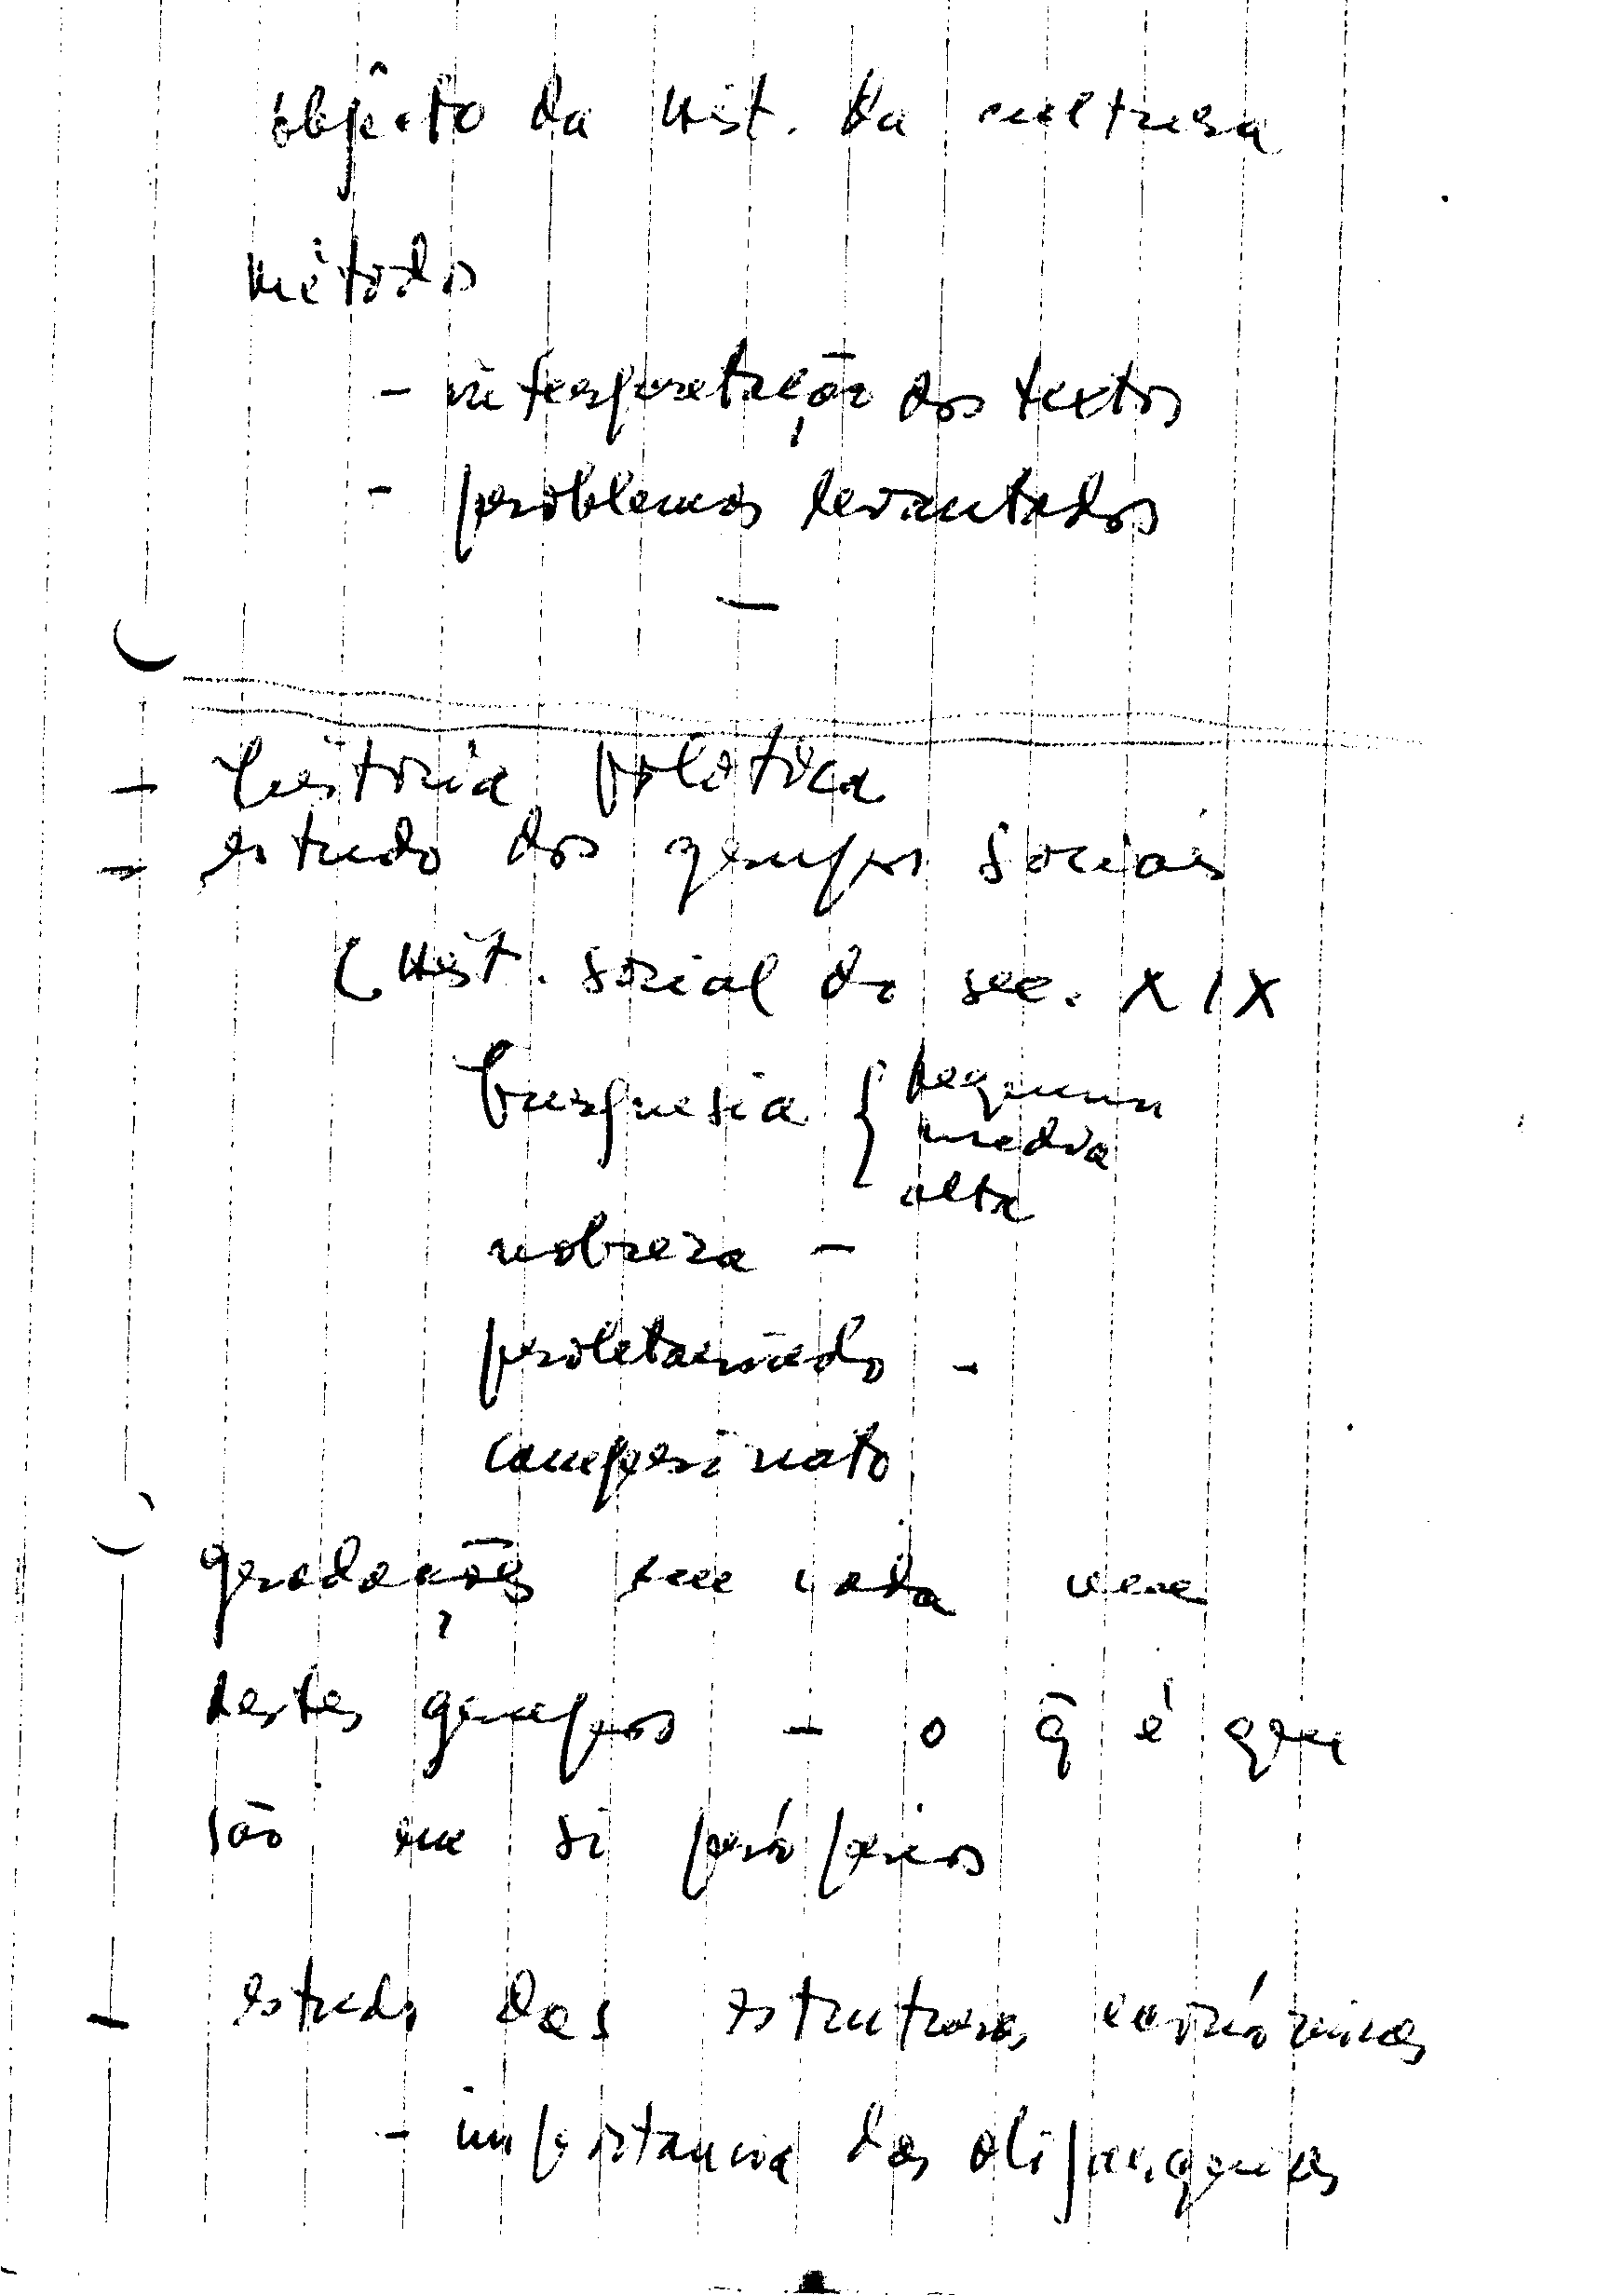 objêcto da Hist. da cultura
método
- interpretação dos textos
- problemas levantados
—
- história política
- estudo dos grupos sociais
( Hist. social do sec. XIX
burguesia { pequena
media
alta
nobreza -
proletariado -
campesinato
gradações em cada um
destes grupos - o q̃ é que
são em si próprios
- estudo das estruturas económicas
- importancia das oligarquias